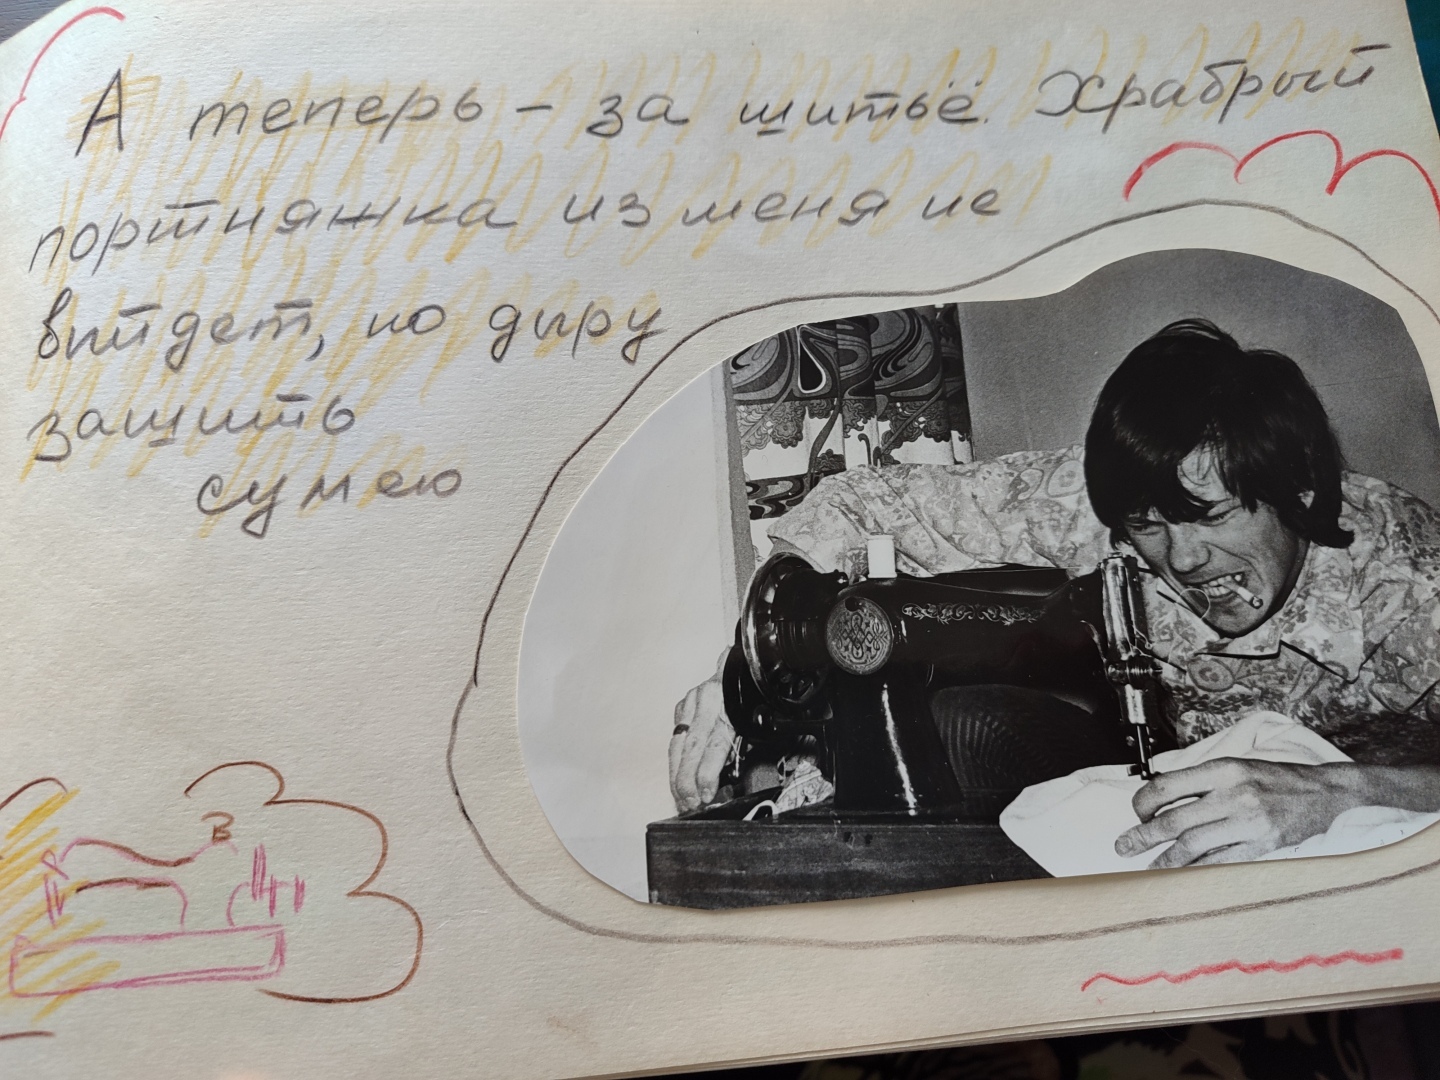 А теперь - за шитьё. Храбрый
портняжка из меня не
выйдет, но дыру
зашить
сумею